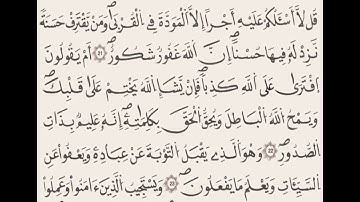 قُل لَّا أَسْـَٔلُكُمْ عَلَيْهِ أَجْرًا إِلَّا الْمَوَدَّةَ فِي الْقُرْبَىٰ وَمَن يَقْتَرِفْ حَسَنَةً
نَّزِدْ لَهُ فِيهَا حُسْنًا إِنَّ اللَّهَ غَفُورٌ شَكُورٌ 21 أَمْ يَقُولُونَ
افْتَرَىٰ عَلَى اللَّهِ كَذِبًا فَإِن يَشَإِ اللَّهُ يَخْتِمْ عَلَىٰ قَلْبِكَ
وَيَمْحُ اللَّهُ الْبَاطِلَ وَيُحِقُّ الْحَقَّ بِكَلِمَاتِهِ إِنَّهُ عَلِيمٌ بِذَاتِ
الصُّدُورِ 22 وَهُوَ الَّذِي يَقْبَلُ التَّوْبَةَ عَنْ عِبَادِهِ وَيَعْفُواْ عَنِ
السَّيِّـَٔاتِ وَيَعْلَمُ مَا يَفْعَلُونَ 23 وَيَسْتَجِيبُ الَّذِينَ ءَامَنُواْ وَعَمِلُواْ